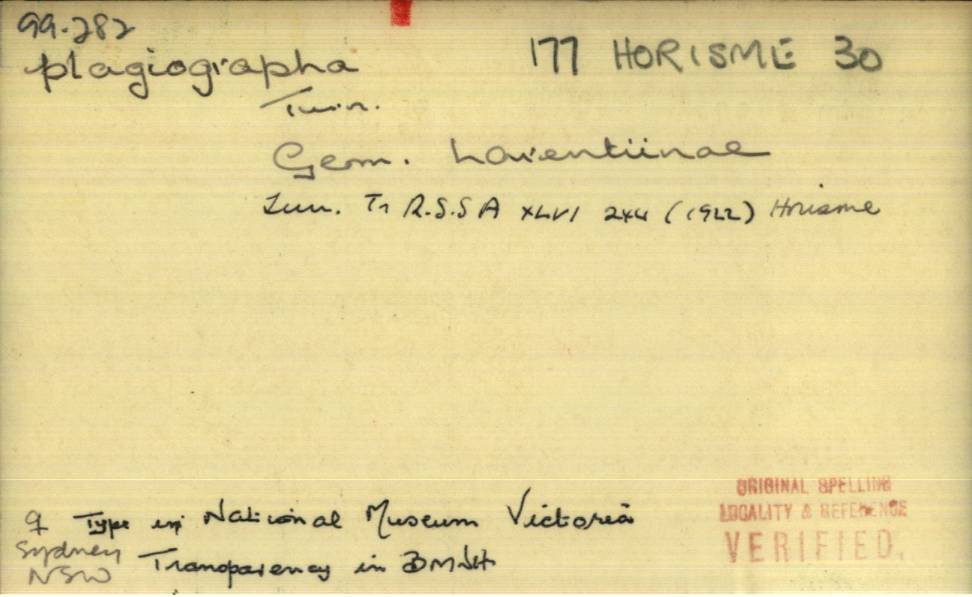 99.282
plagiographa 177 HORISME 30
Turn.
Geom. Larentiinae
Turn. Tr R.S.S A XLVI 244 (1922) Horisme
♀ Type in National Museum Victoria
Sydney Transparency in BMNH
NSW
ORIGINAL SPELLING
LOCALITY & REFERENCE
VERIFIED.